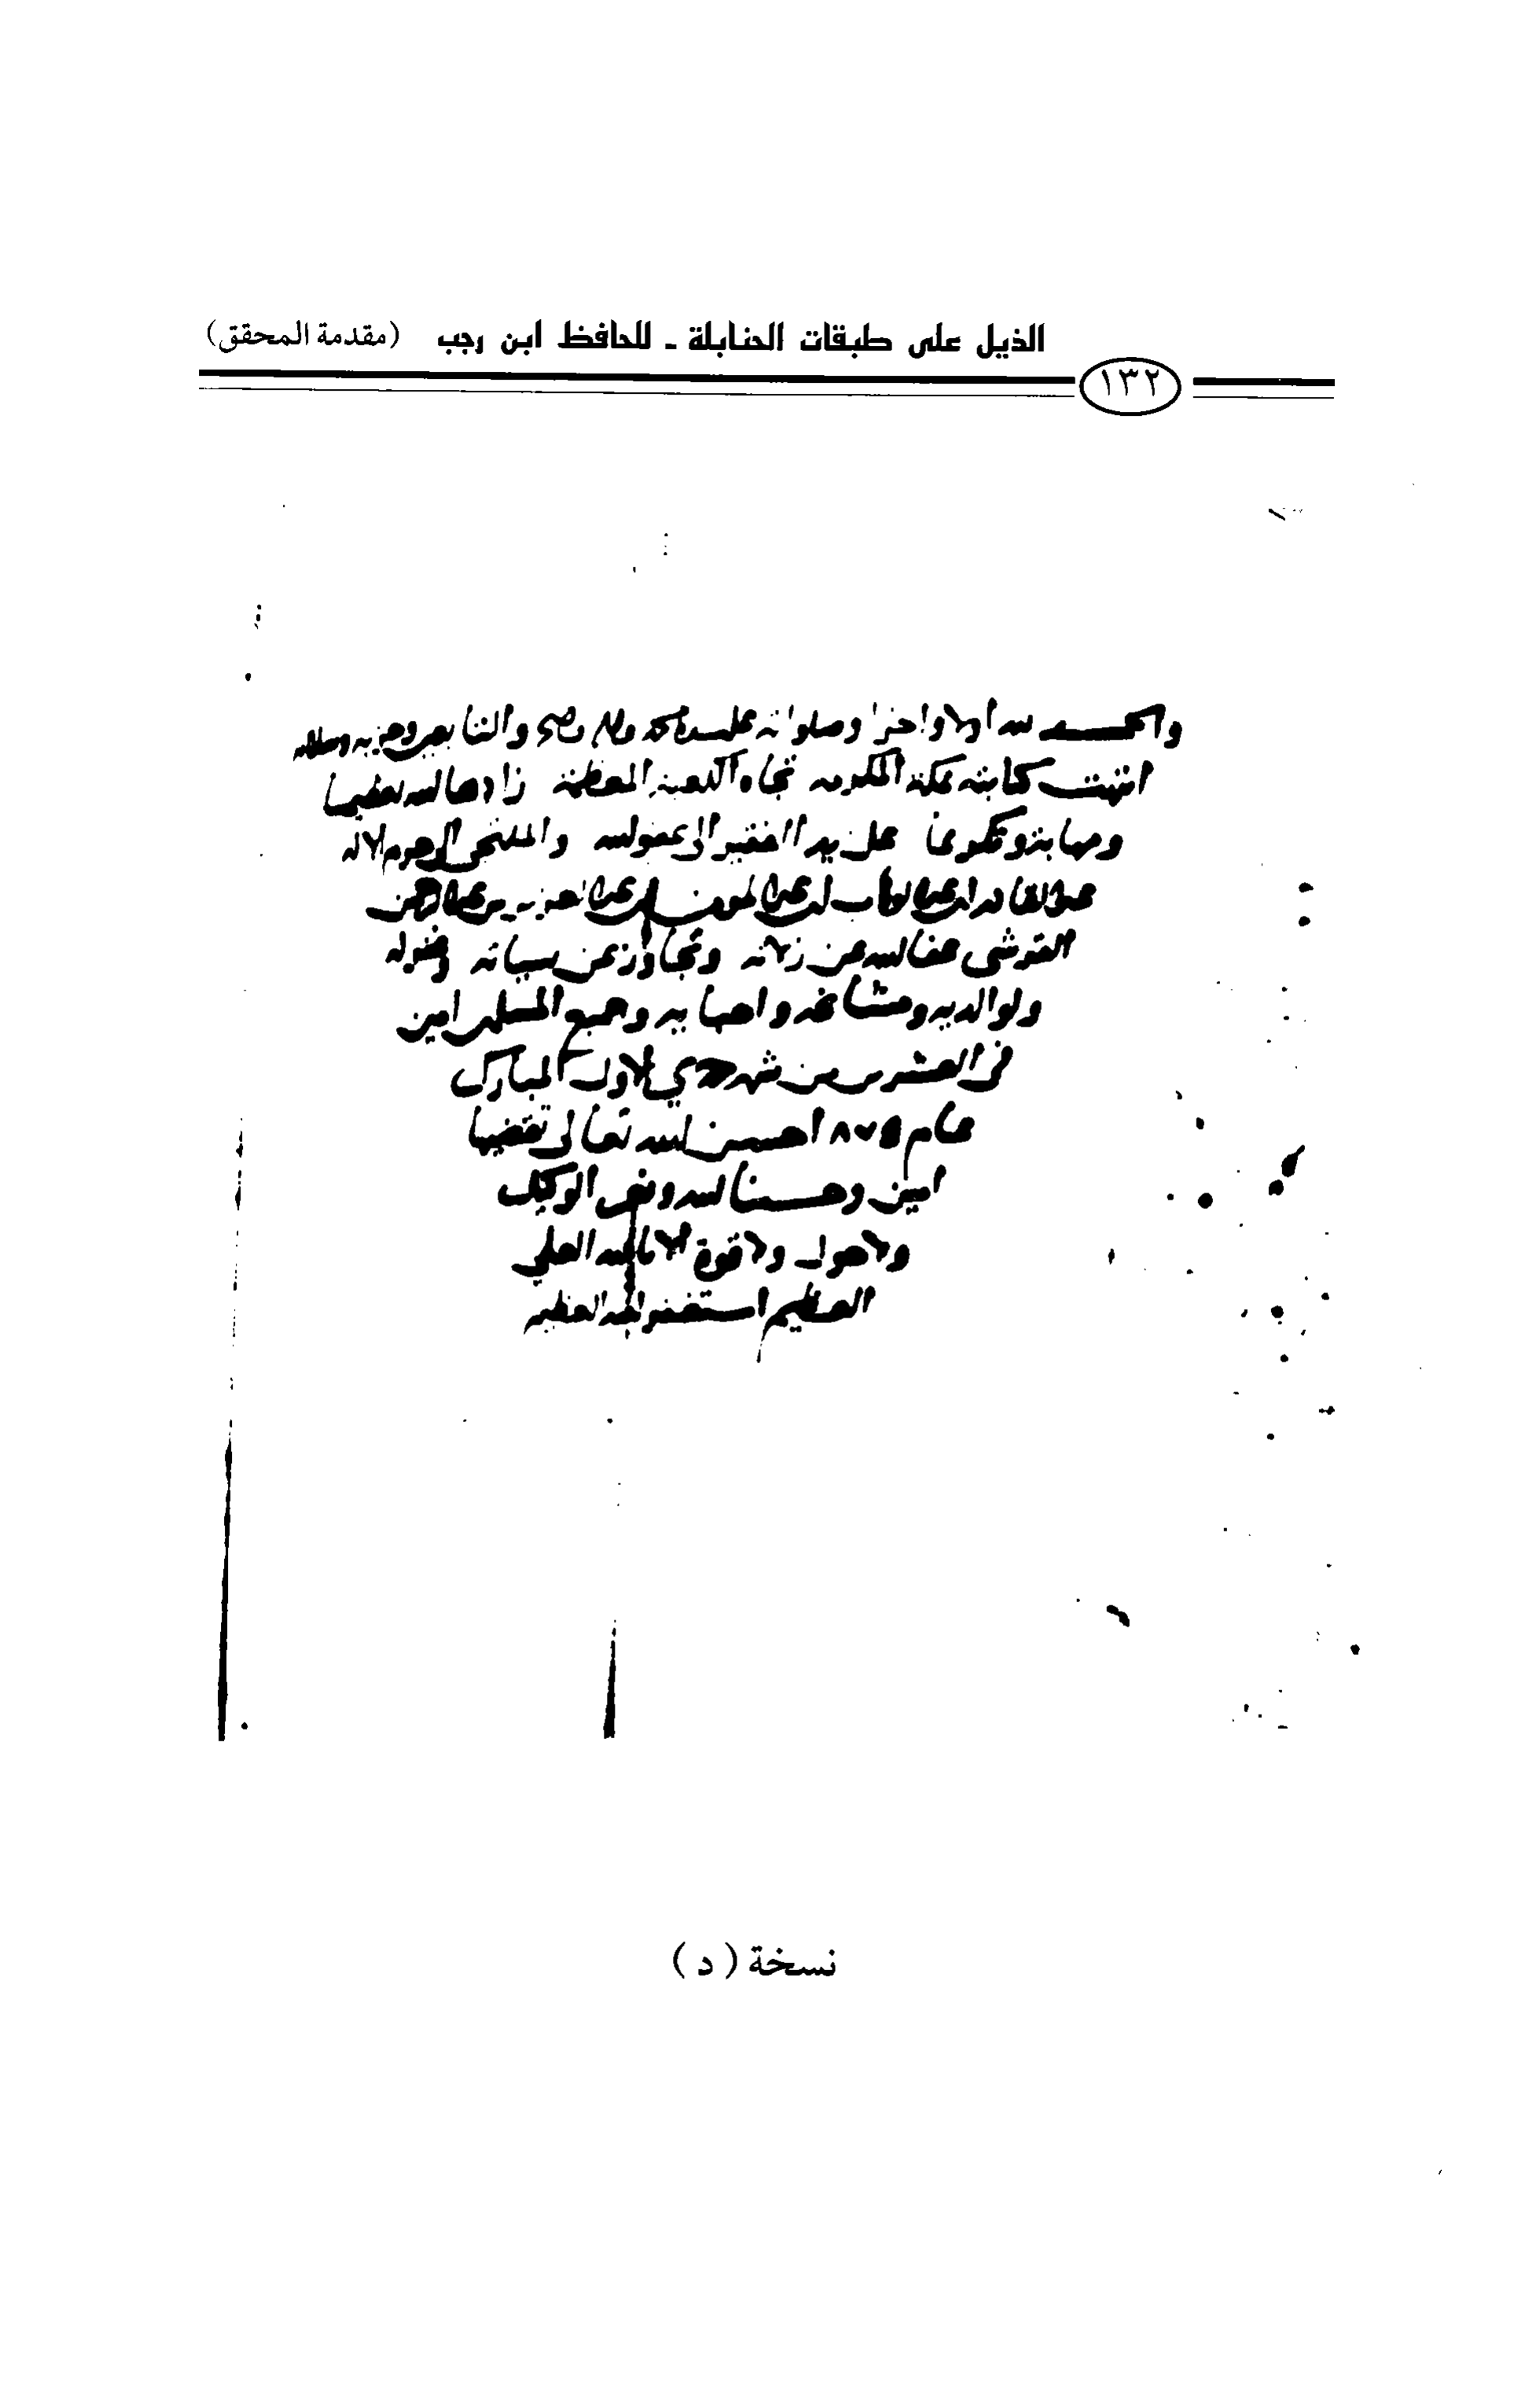 الذيل على طبقات الحنابلة - للحافظ ابن رجب (مقدمة المحقق)
١٣٢
والحمد لله اولا واخرا وصلواته على سيدنا محمد واله وصحبه والتابعين وحزبه وسلامه
انتهت كتابته بمكة المكرمه تجاه الكعبة المعظمة زادها الله تعظيما
ومهابة وتكريما على يد الفقير الى عفو الله والملتجى الى حرم الاله
عبد القادر بن عبد الوهاب بن عبد المومن بن عبد العزيز بن عبد الرحمن
القرشى عفا الله عن زلاته وتجاوز عن سياته وغفر له
ولوالديه ومشايخه واحبابه وجميع المسلمين امين
فى العشرين من شهر جمادي الاول المبارك
عام ٨٧٥ احسن الله تعالى تقضيها
امين وحسبنا الله ونعم الوكيل
ولا حول ولا قوة الا بالله العلي
العظيم استغفر الله العظيم
نسخة (د)